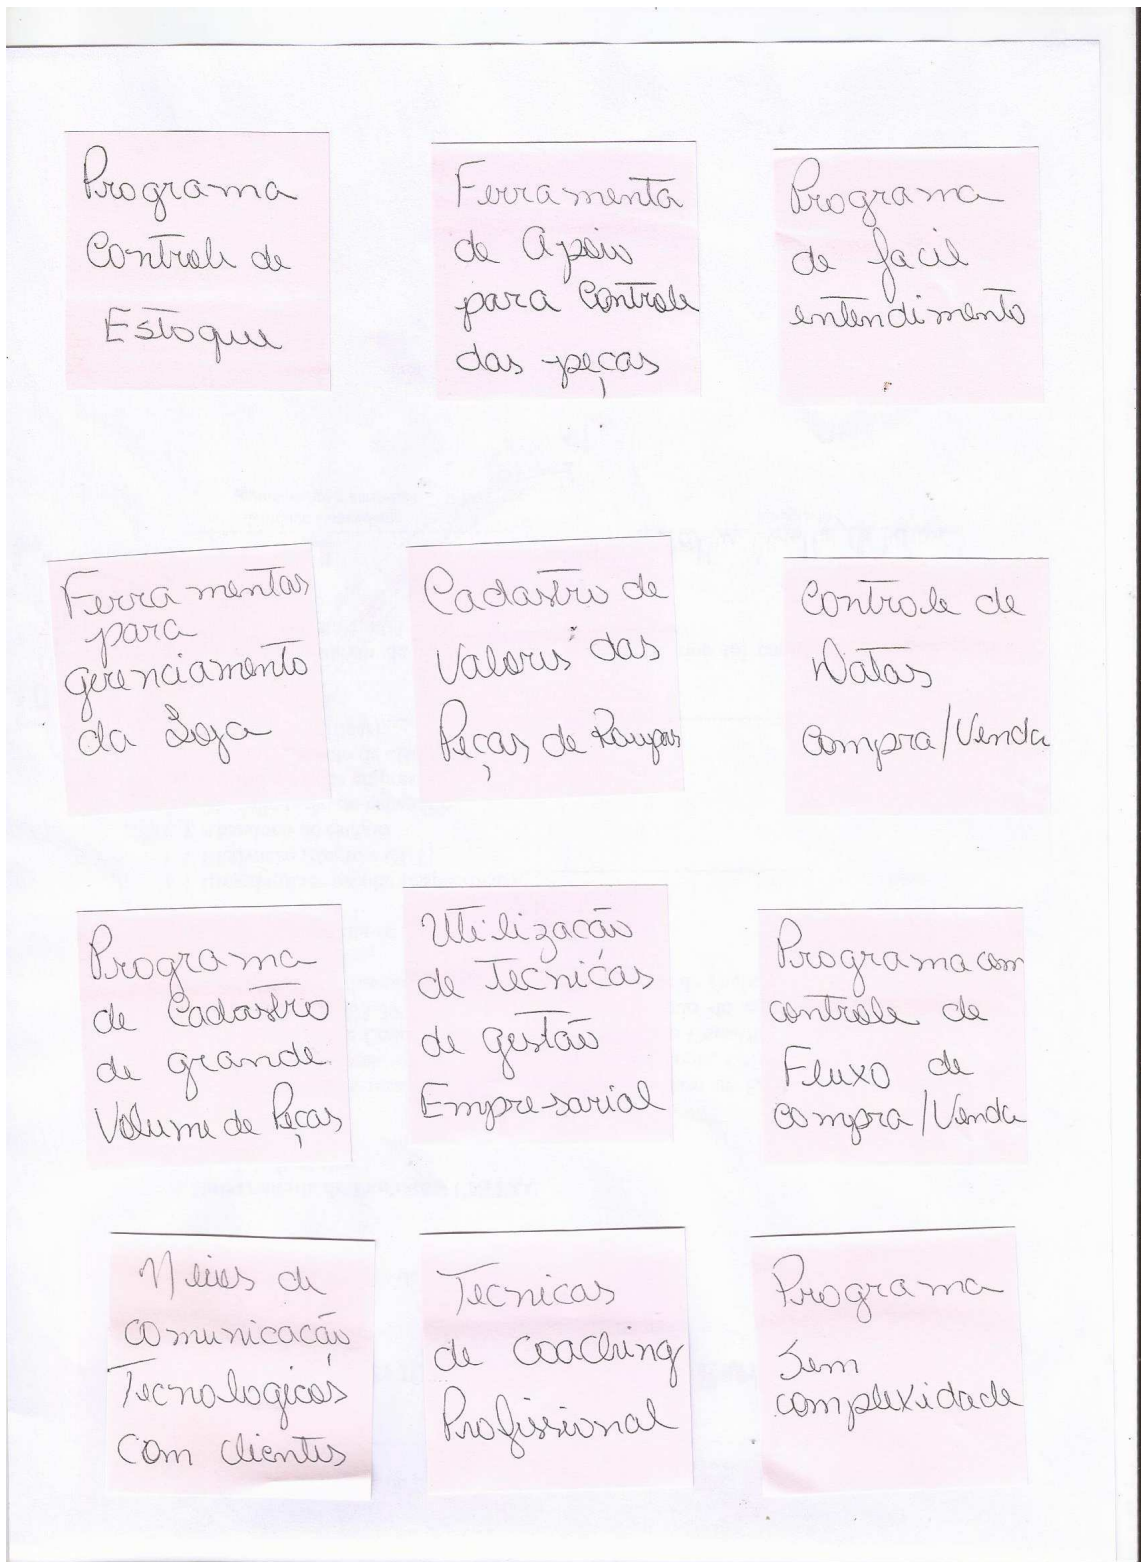 Programa
Controle de
Estoque
Ferramenta
de Apoio
para Controle
das peças
Programa
de facil
entendimento
Ferramentas
para
gerenciamento
da Loja
Cadastro de
Valores das
Peças de Roupas
Controle de
Datas
compra/Venda
Programa
de Cadastro
de grande
Volume de Peças
Utilização
de Tecnicas
de gestão
Empresarial
Programa com
controle de
Fluxo de
compra/Venda
Meios de
comunicação
Tecnologicos
com clientes
Tecnicas
de coaching
Profissional
Programa
Sem
complexidade